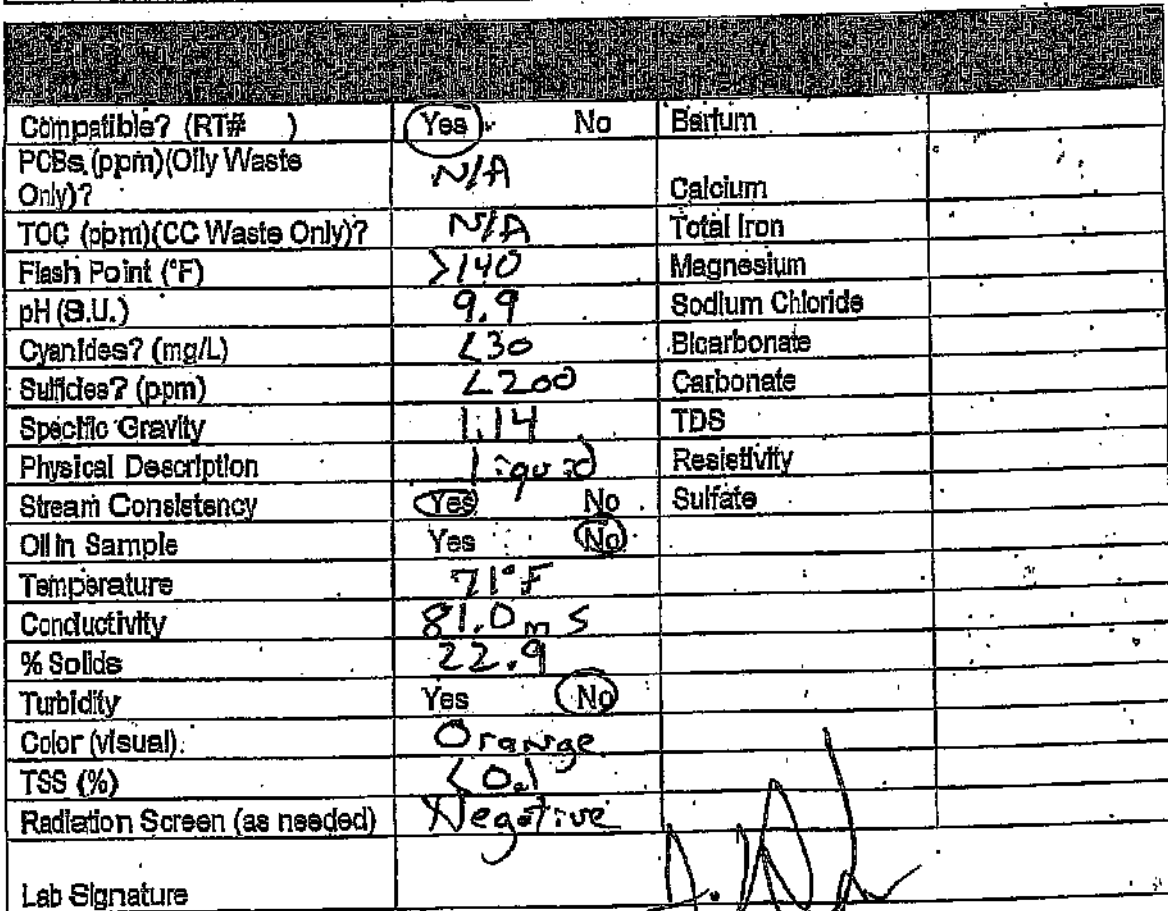 Compatible? (RT# ) Yes No Barium
PCBs (ppm)(Oily Waste
Only)? N/A Calcium
TOC (ppm)(CC Waste Only)? N/A Total Iron
Flash Point (°F) >140 Magnesium
pH (S.U.) 9.9 Sodium Chloride
Cyanides? (mg/L) <30 Bicarbonate
Sulfides? (ppm) <200 Carbonate
Specific Gravity 1.14 TDS
Physical Description liquid Resistivity
Stream Consistency Yes No Sulfate
Oil in Sample Yes No
Temperature 71°F
Conductivity 81.0 mS
% Solids 22.9
Turbidity Yes No
Color (visual). Orange
TSS (%) <0.1
Radiation Screen (as needed) Negative
Lab Signature